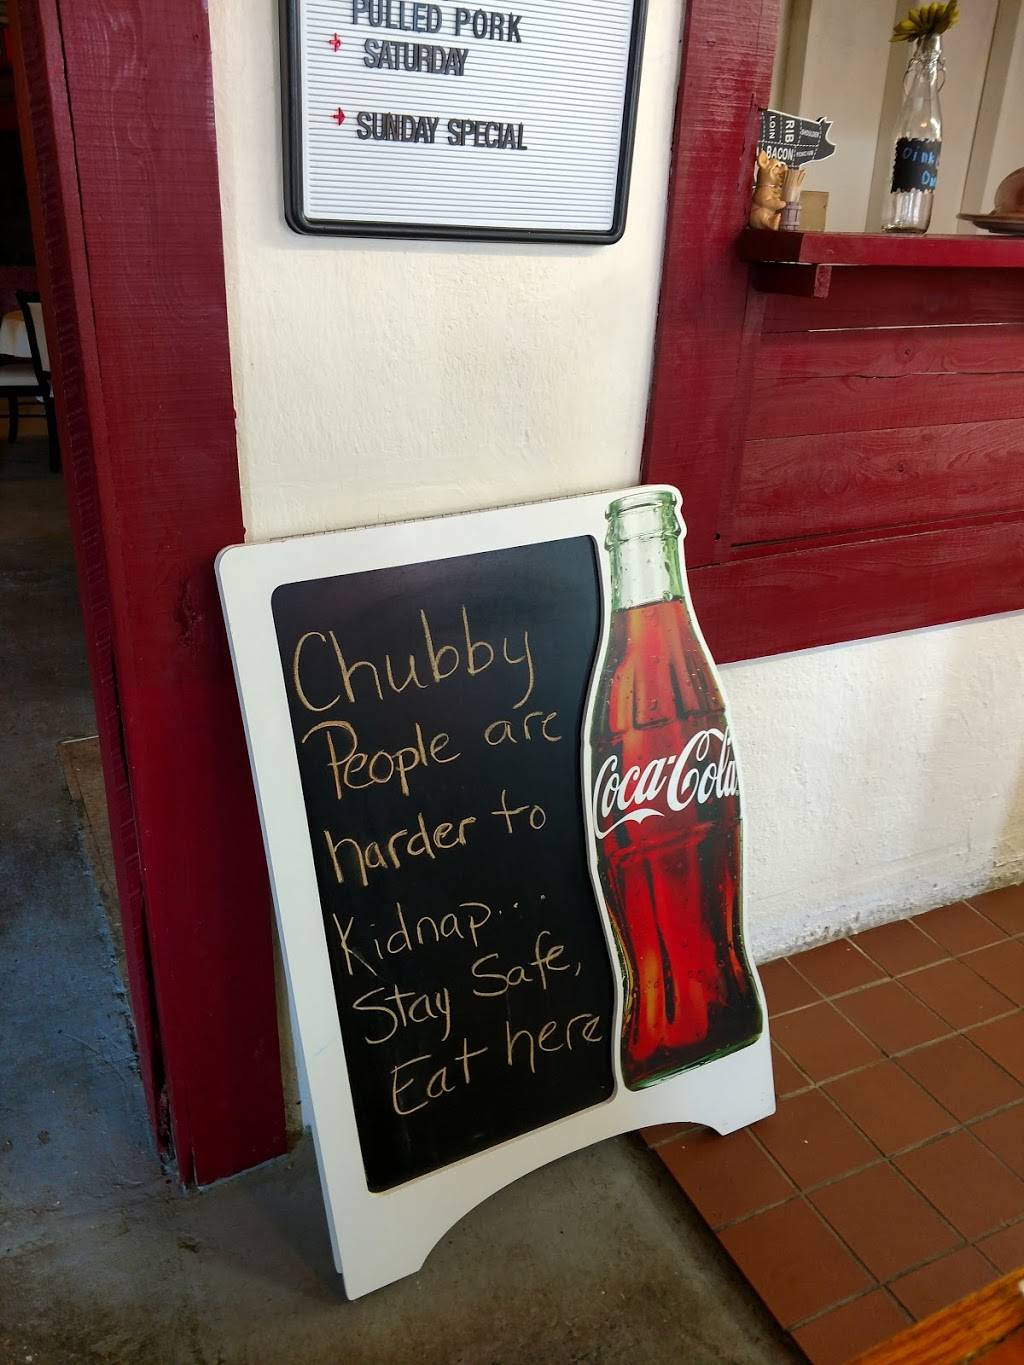 PULLED PORK
SATURDAY
SUNDAY SPECIAL
LOIN
RIB
SHOULDER
BACON
Chubby
People are
harder to
Kidnap...
Stay Safe,
Eat here
Coca-Cola